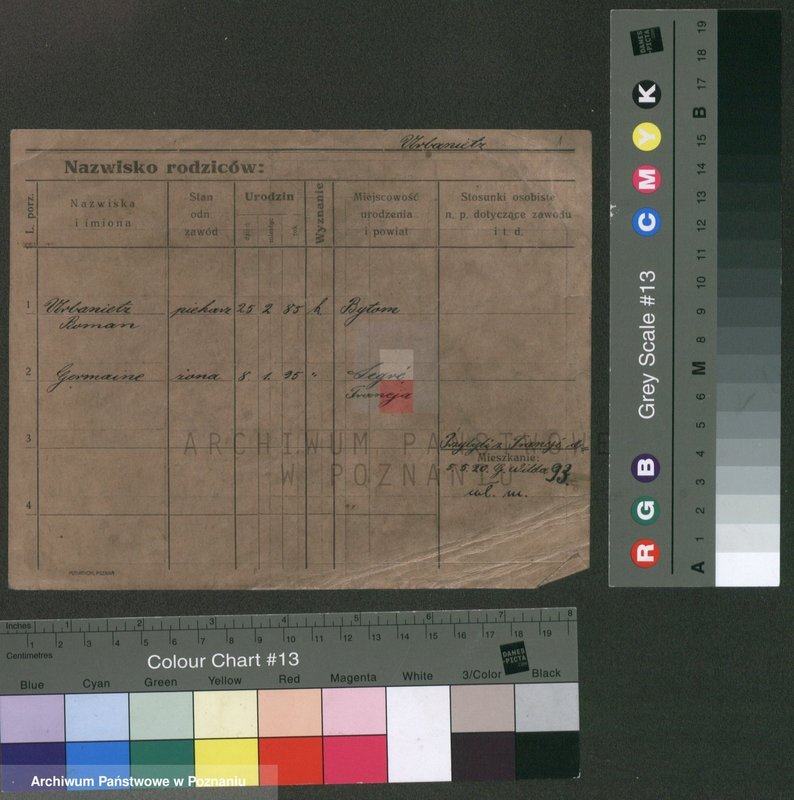 Urbanietz
Nazwisko rodziców:
L. porz.
Nazwiska
i imiona
Stan
odn.
zawód
Urodzin
dzień
miesiąc
rok
Wyznanie
Miejscowość
urodzenia
i powiat
Stosunki osobiste
n. p. dotyczące zawodu
i t. d.
1 Urbanietz piekarz 25 2 85 k Bytom
Roman
2 Germaine żona 8 1. 95 " Segré
Francja
3 Przybyli z Francji d.
Mieszkanie:
5.5.20. G. Wilda 93.
wł. m.
4
ARCHIWUM PAŃSTWOWE
W POZNANIU
Inches 1 2 3 4 5 6 7 8
1 2 3 4 5 6 7 8 9 10 11 12 13 14 15 16 17 18 19
Centimetres
Colour Chart #13
DANES
-PICTA
.COM
Blue Cyan Green Yellow Red Magenta White 3/Color Black
Archiwum Państwowe w Poznaniu
Grey Scale #13
R G B C M Y K
A 1 2 3 4 5 6 M 8 9 10 11 12 13 14 15 B 17 18 19
DANES
-PICTA
.COM